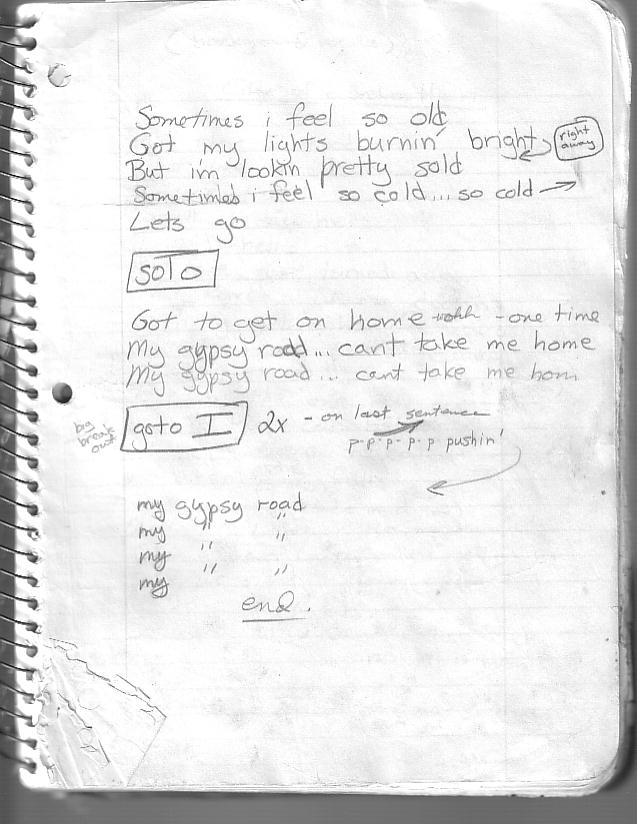 Sometimes i feel so old
Got my lights burnin' bright
right away
But i'm lookin pretty sold
Sometimes i feel so cold... so cold →
Lets go
solo
Got to get on home - one time
My gypsy road... cant take me home
My gypsy road... cant take me hom
goto I 2x - on last sentence
big break out
p-p-p-p-p pushin'
my gypsy road
my " "
my " "
my
end.